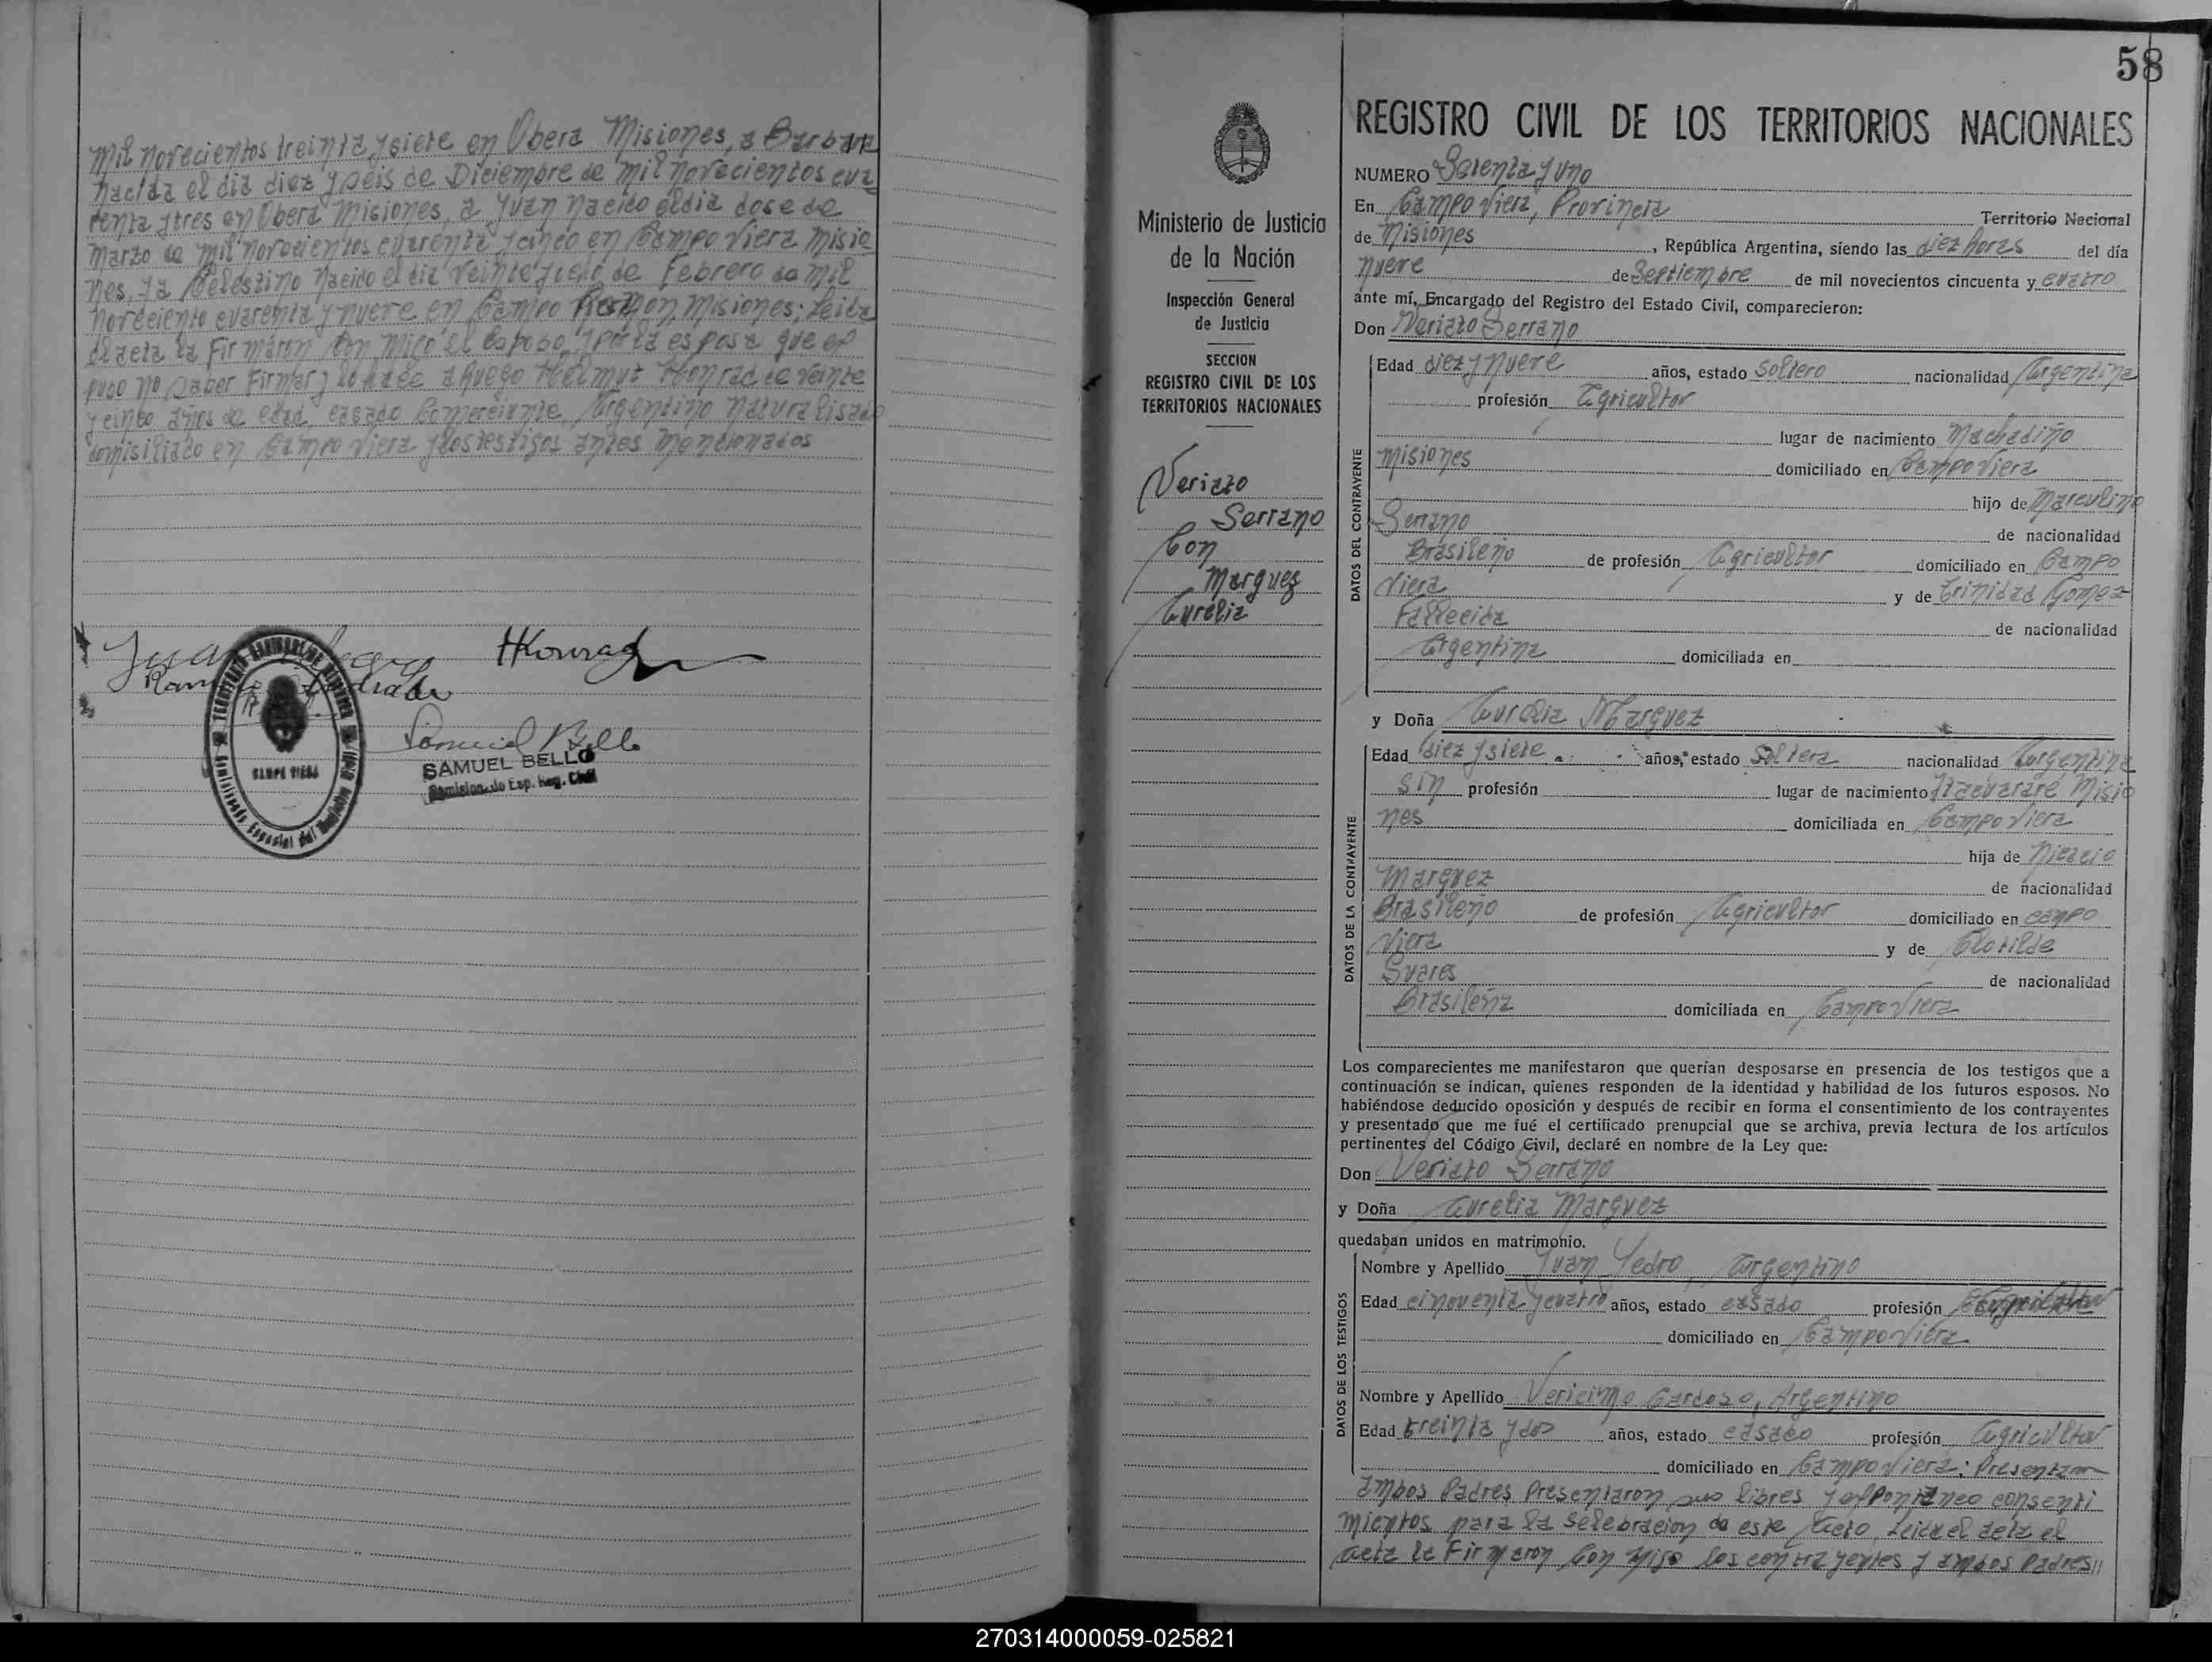 mil novecientos treinta y siete en Obera Misiones, a Barbara
nacida el dia diez y seis de Diciembre de mil novecientos cua
renta y tres en Obera Misiones, a Juan nacido el dia dose de
marzo de mil novecientos cuarenta y cinco en Campo Viera Misio
nes, y a Celestino nacido el dia veinte y de Febrero de mil
novceiento cuarenta y nueve en Campo Ramon, Misiones; Leida
el acta la Firmaron Con migo el Esposo y por la esposa que ex
puso no saber Firmar y lo hace a ruego Helmut Honrad de veinte
y cinco años de edad, casado Comerciante, Argentino naturalisado
domisiliado en Campo Viera y los testigos antes mencionados
HKonrad
Samuel Bello
CAMPO VIERA
SAMUEL BELLO
Comisionado Esp. Reg. Civil
58
Ministerio de Justicia
de la Nación
Inspección General
de Justicia
SECCION
REGISTRO CIVIL DE LOS
TERRITORIOS NACIONALES
Veriato
Serrano
Con
Marquez
Aurelia
REGISTRO CIVIL DE LOS TERRITORIOS NACIONALES
NUMERO Setenta y uno
En Campo Viera, Provincia Territorio Nacional
de Misiones, República Argentina, siendo las diez horas del día
nueve de Septiembre de mil novecientos cincuenta y cuatro
ante mí, Encargado del Registro del Estado Civil, comparecieron:
Don Veriato Serrano
DATOS DEL CONTRAYENTE
Edad diez y nueve años, estado Soltero nacionalidad Argentina
profesión Agricultor
lugar de nacimiento Machadiño
Misiones domiciliado en Campo Viera
hijo de Marculino
Serrano de nacionalidad
Brasileño de profesión Agricultor domiciliado en Campo
Viera y de Trinidad Gomez
Fallecida de nacionalidad
Argentina domiciliada en
y Doña Aurelia Marquez
DATOS DE LA CONTRAYENTE
Edad diez y siete años, estado Soltera nacionalidad Argentina
Sin profesión lugar de nacimiento Itacuarare Misio
nes domiciliada en Campo Viera
hija de Nicacio
Marquez de nacionalidad
Brasileño de profesión Agricultor domiciliado en campo
Viera y de Clotilde
Suares de nacionalidad
Brasileña domiciliada en Campo Viera
Los comparecientes me manifestaron que querían desposarse en presencia de los testigos que a
continuación se indican, quienes responden de la identidad y habilidad de los futuros esposos. No
habiéndose deducido oposición y después de recibir en forma el consentimiento de los contrayentes
y presentado que me fué el certificado prenupcial que se archiva, previa lectura de los artículos
pertinentes del Código Civil, declaré en nombre de la Ley que:
Don Veriato Serrano
y Doña Aurelia Marquez
quedaban unidos en matrimonio.
DATOS DE LOS TESTIGOS
Nombre y Apellido Juan Yedro, Argentino
Edad cinquenta y cuatro años, estado casado profesión
domiciliado en Campo Viera
Nombre y Apellido Cardozo, Argentino
Edad treinta y dos años, estado casado profesión Agricultor
domiciliado en Campo Viera; Presentaron
ambos Padres Presentaron sus libres y espontaneo consenti
mientos para la selebracion de este Acto Leida el acta el
acta la Firmaron Con migo los contrayentes y ambos Padres //
270314000059-025821